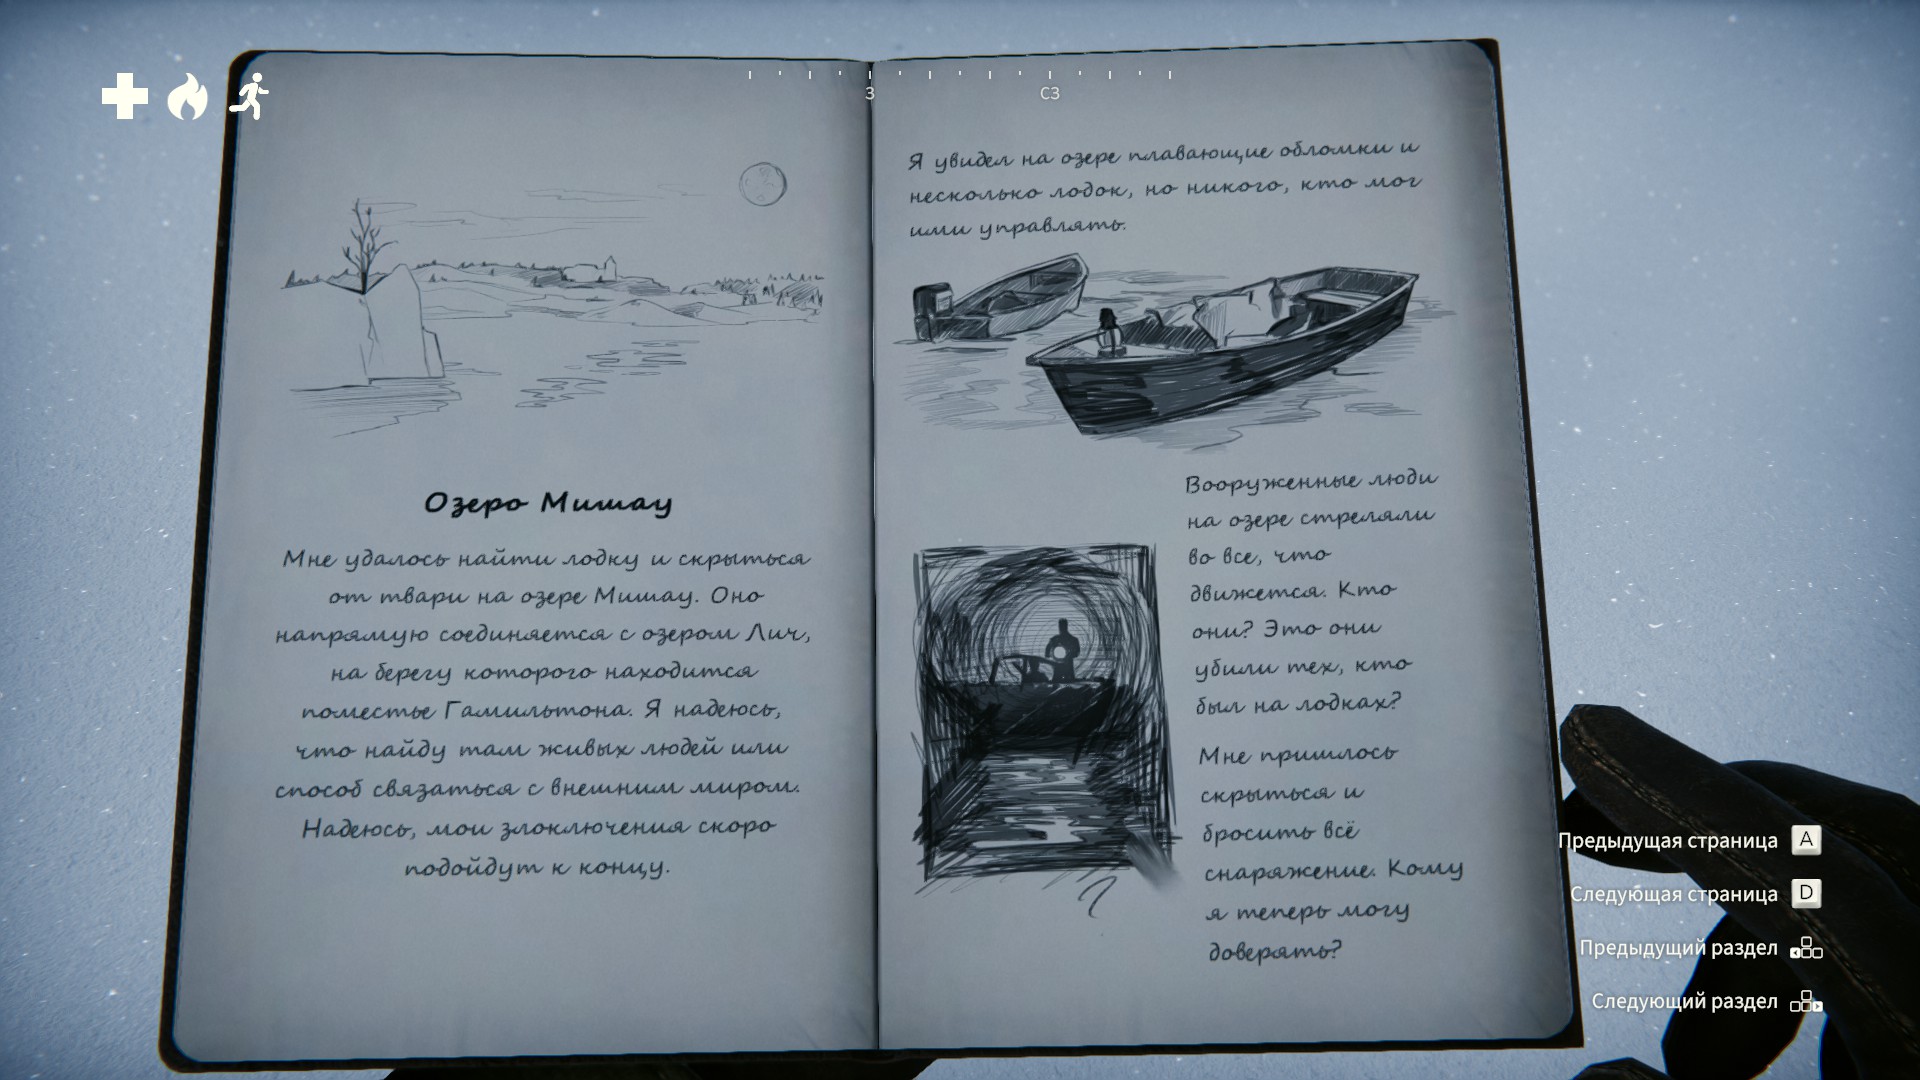 З
СЗ
Озеро Мишау
Мне удалось найти лодку и скрыться
от твари на озере Мишау. Оно
напрямую соединяется с озером Лич,
на берегу которого находится
поместье Гамильтона. Я надеюсь,
что найду там живых людей или
способ связаться с внешним миром.
Надеюсь, мои злоключения скоро
подойдут к концу.
Я увидел на озере плавающие обломки и
несколько лодок, но никого, кто мог
ими управлять.
Вооруженные люди
на озере стреляли
во все, что
движется. Кто
они? Это они
убили тех, кто
был на лодках?
Мне пришлось
скрыться и
бросить всё
снаряжение. Кому
я теперь могу
доверять?
Предыдущая страница A
Следующая страница D
Предыдущий раздел
Следующий раздел